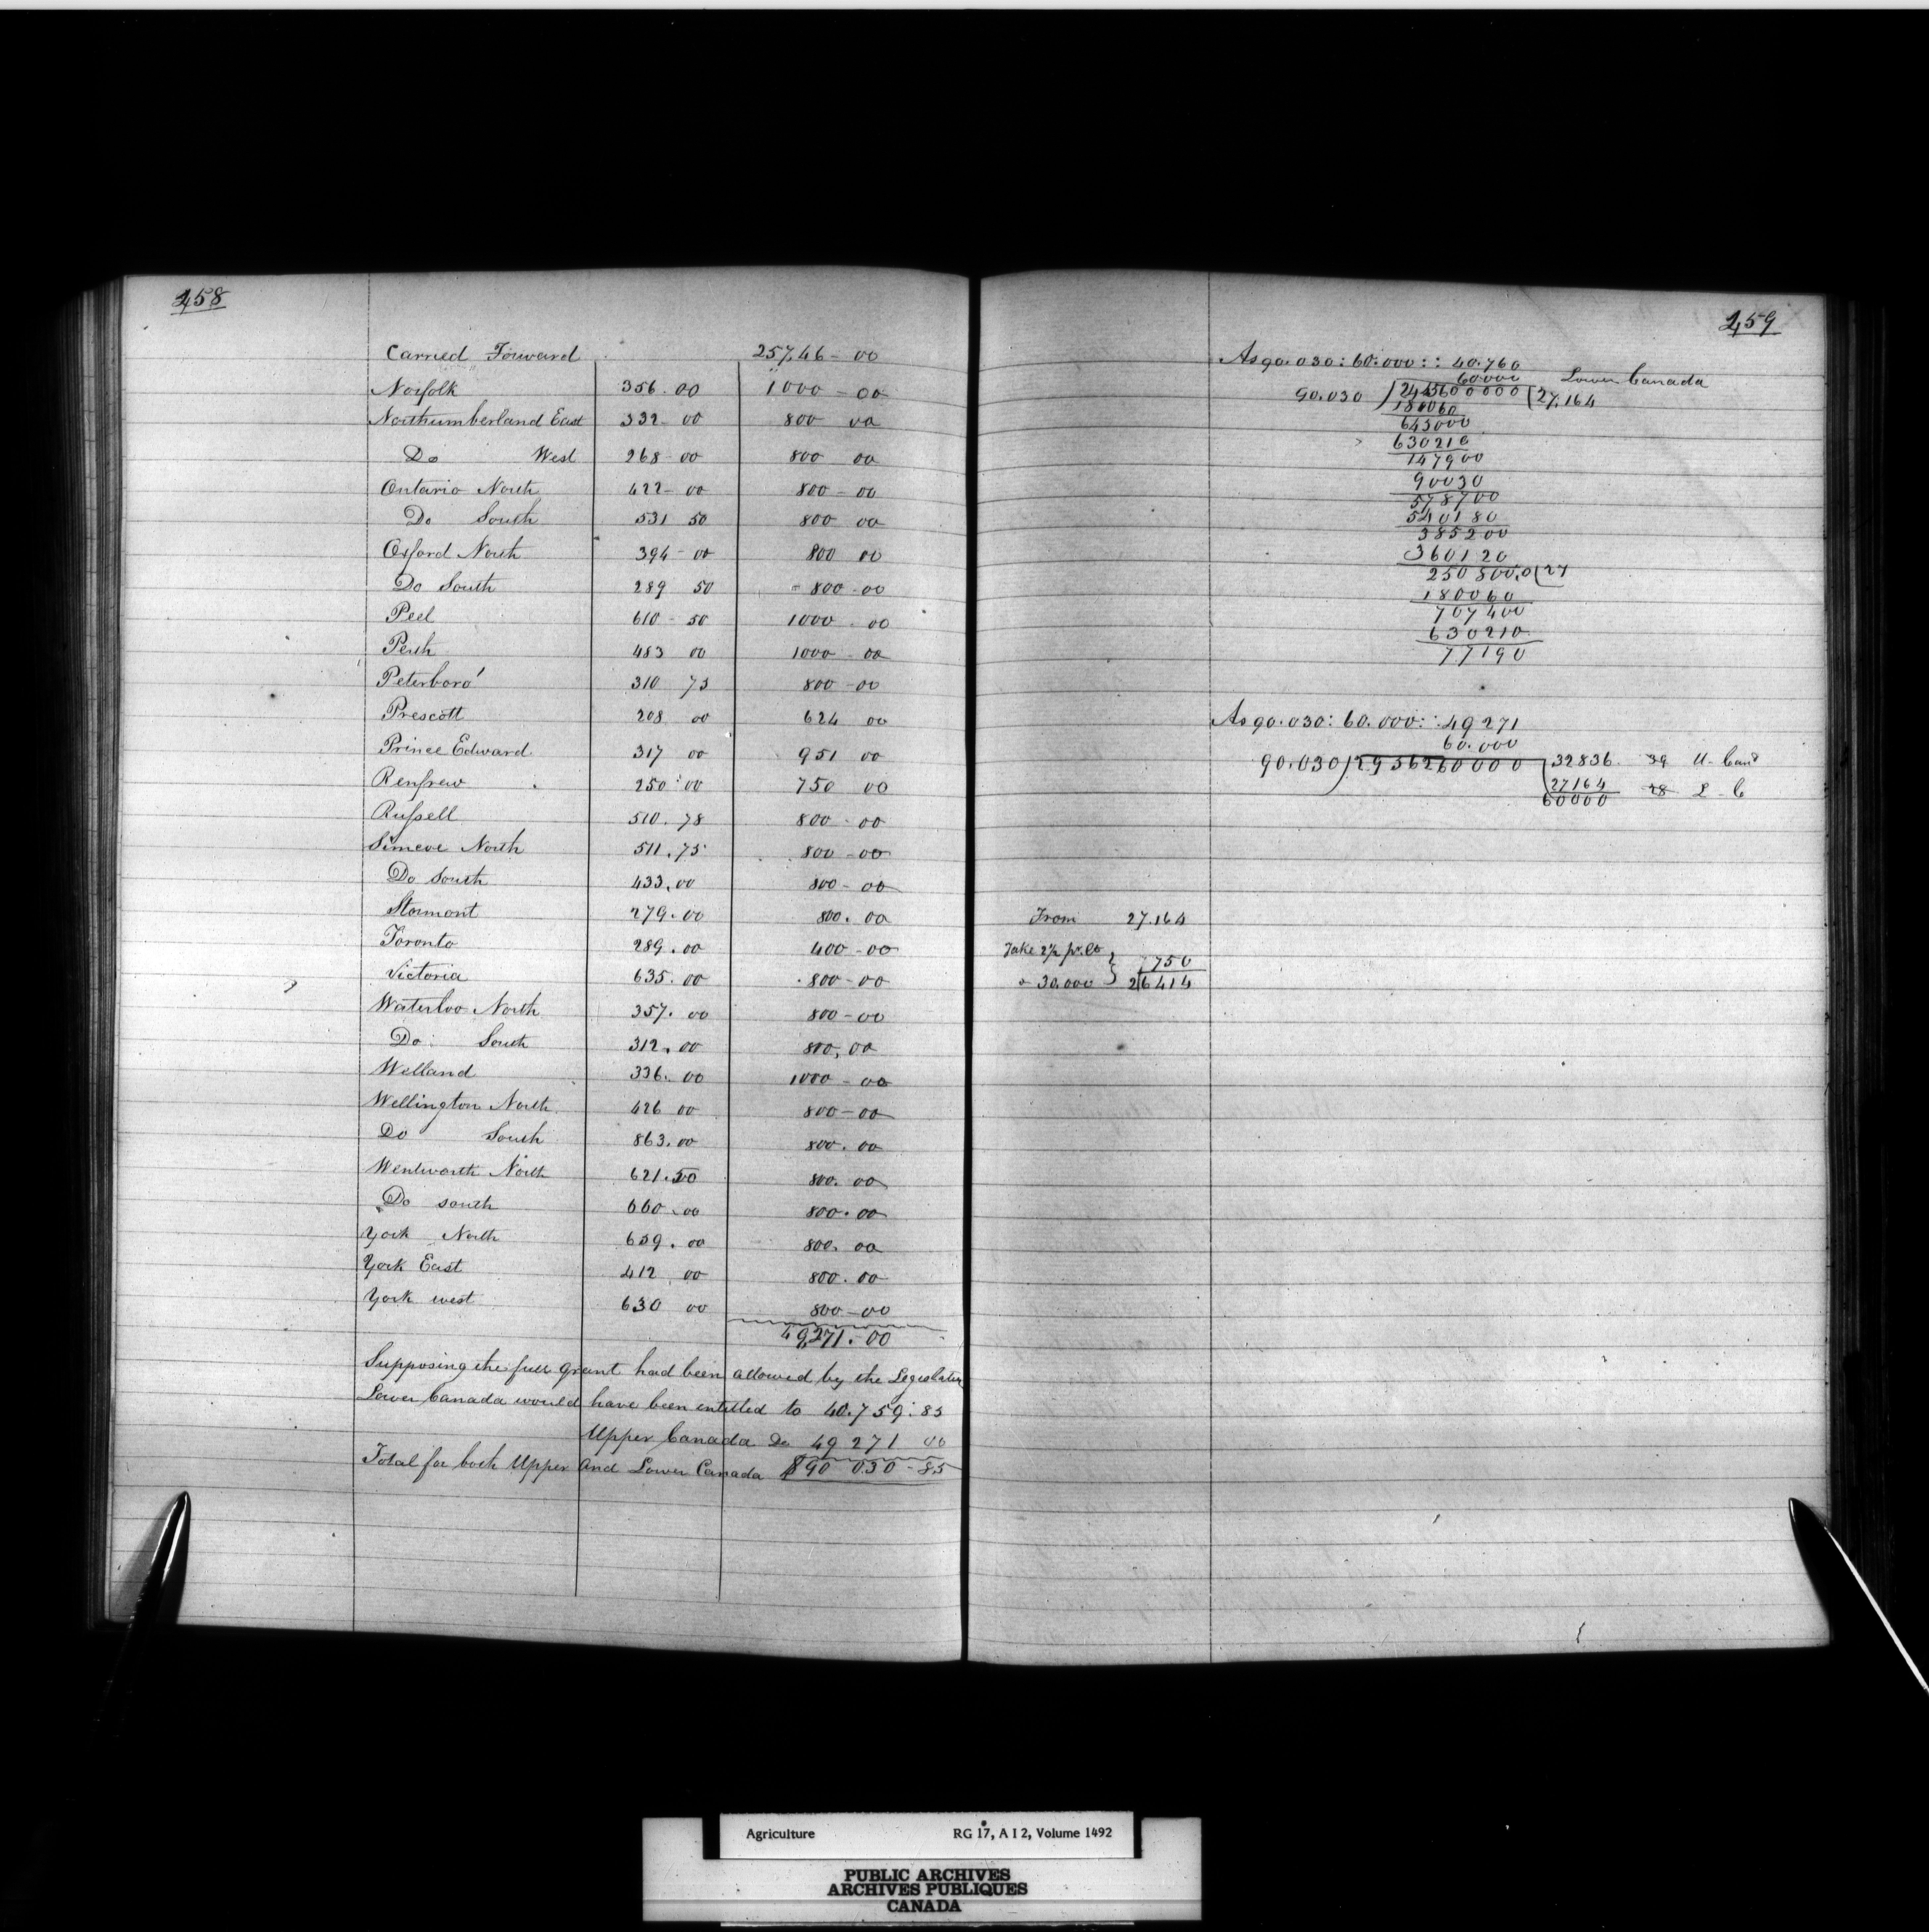 458
Carried Forward 257.46 - 00
Norfolk 356.00 1000 - 00
Northumberland East 332 - 00 800 00
Do West 268 - 00 800 00
Ontario North 422 - 00 800 - 00
Do South 531 50 800 00
Oxford North 394 - 00 800 00
Do South 289 50 - 800 - 00
Peel 610 - 50 1000 - 00
Perth 483 00 1000 - 00
Peterboro' 310 75 800 - 00
Prescott 208 00 624 00
Prince Edward 317 00 951 00
Renfrew 250 : 00 750 00
Russell 510.78 800 - 00
Simcoe North 511.75 800 - 00
Do South 433.00 800 - 00
Stormont 279.00 800.00
Toronto 289.00 400 - 00
Victoria 635.00 800 - 00
Waterloo North 357.00 800 - 00
Do South 312.00 800.00
Welland 336.00 1000 - 00
Wellington North 426 00 800 - 00
Do South 863.00 800.00
Wentworth North 621.50 800.00
Do south 660.00 800.00
York North 659.00 800.00
York East 412 00 800.00
York west 630 00 800 - 00
49,271.00
Supposing the full grant had been allowed by the Legislature
Lower Canada would have been entitled to 40.759:85
Upper Canada Do 49 271 00
Total for both Upper and Lower Canada $90 030 - 85
459
As 90.030 : 60.000 :: 40.760
60000 Lower Canada
90.030 ) 2445600000 ( 27,164
180060
645000
630210
147900
90030
578700
540180
385200
360120
250800.0 ( 27
180060
707400
630210
77190
As 90.030 : 60.000 :: 49271
60.000
90.030 ) 2956260000 32836 39 U - Can
27164 28 L - C
60000
From 27.164
Take 2½ pr. Ct }
750
30.000 26414
Agriculture RG 17, A I 2, Volume 1492
PUBLIC ARCHIVES
ARCHIVES PUBLIQUES
CANADA